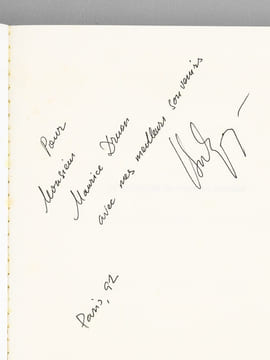 Pour
Monsieur
Maurice Druon
avec mes meilleurs souvenirs
Paris, 92